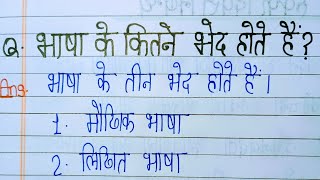 Q. भाषा के कितने भेद होते हैं?
Ans. भाषा के तीन भेद होते हैं।
1. मौखिक भाषा
2. लिखित भाषा